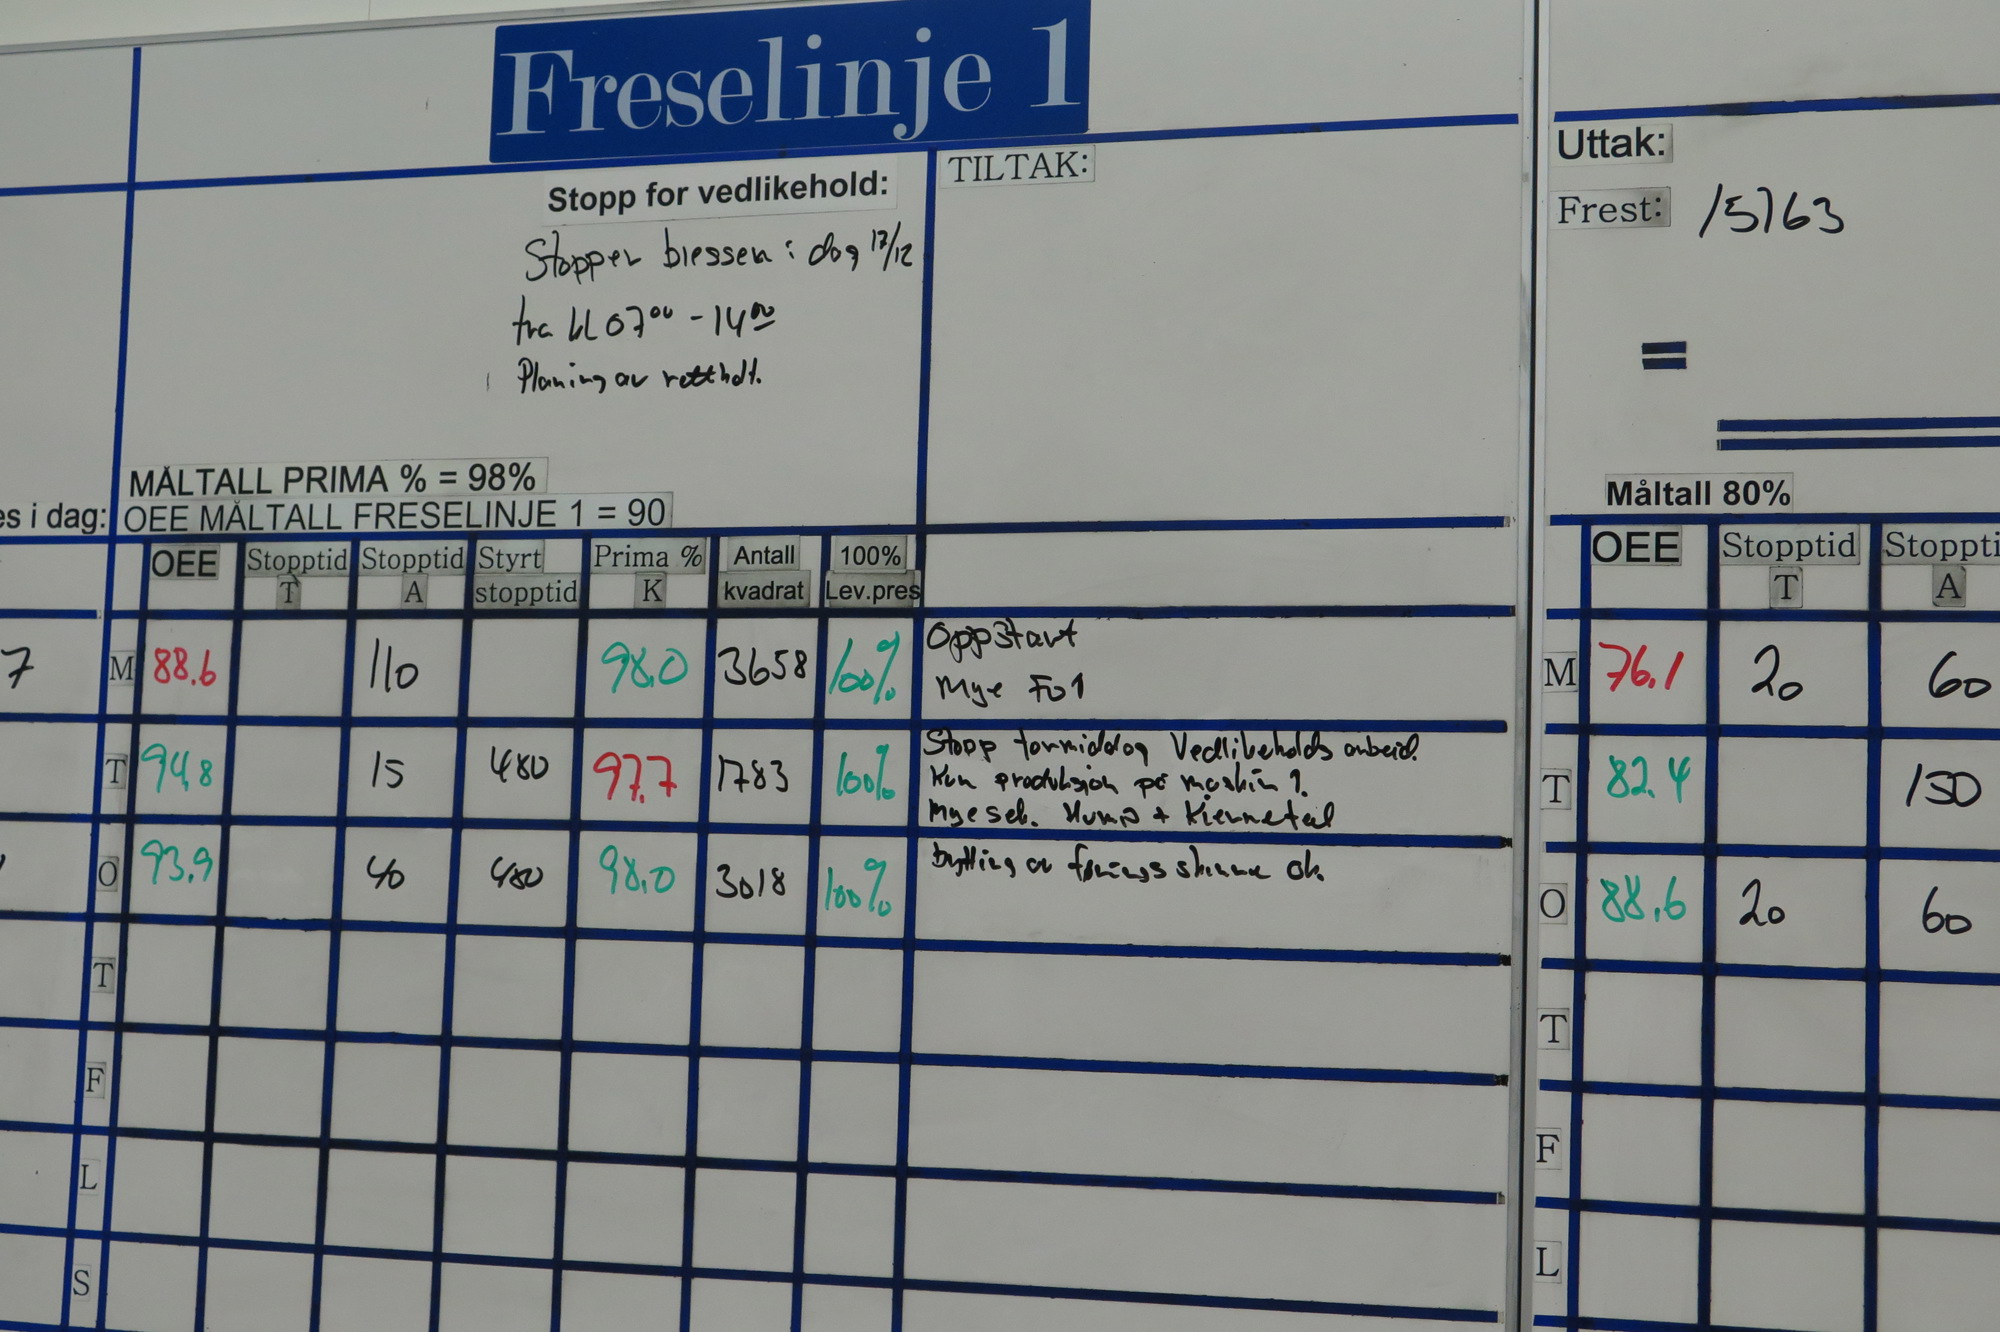 Freselinje 1
Stopp for vedlikehold:
Stopper i dag 17/12
fra kl 07⁰⁰ - 14⁰⁰
Planing av rettholt.
TILTAK:
MÅLTALL PRIMA % = 98%
es i dag: OEE MÅLTALL FRESELINJE 1 = 90
OEE Stopptid T Stopptid A Styrt stopptid Prima % K Antall kvadrat 100% Lev.pres
7 M 88.6 110 98.0 3658 100% Oppstart
Mye F01
T 94,8 15 480 97.7 1783 100% Stopp formiddag Vedlikeholds arbeid.
Kun produksjon på maskin 1.
Mye seb. Hump +
O 93.9 40 480 98.0 3018 100% bytting av førings skinne ok.
T
F
L
S
Uttak:
Frest: 15763
=
Måltall 80%
OEE Stopptid T Stoppti A
M 76.1 20 60
T 82.4 150
O 88.6 20 60
T
F
L